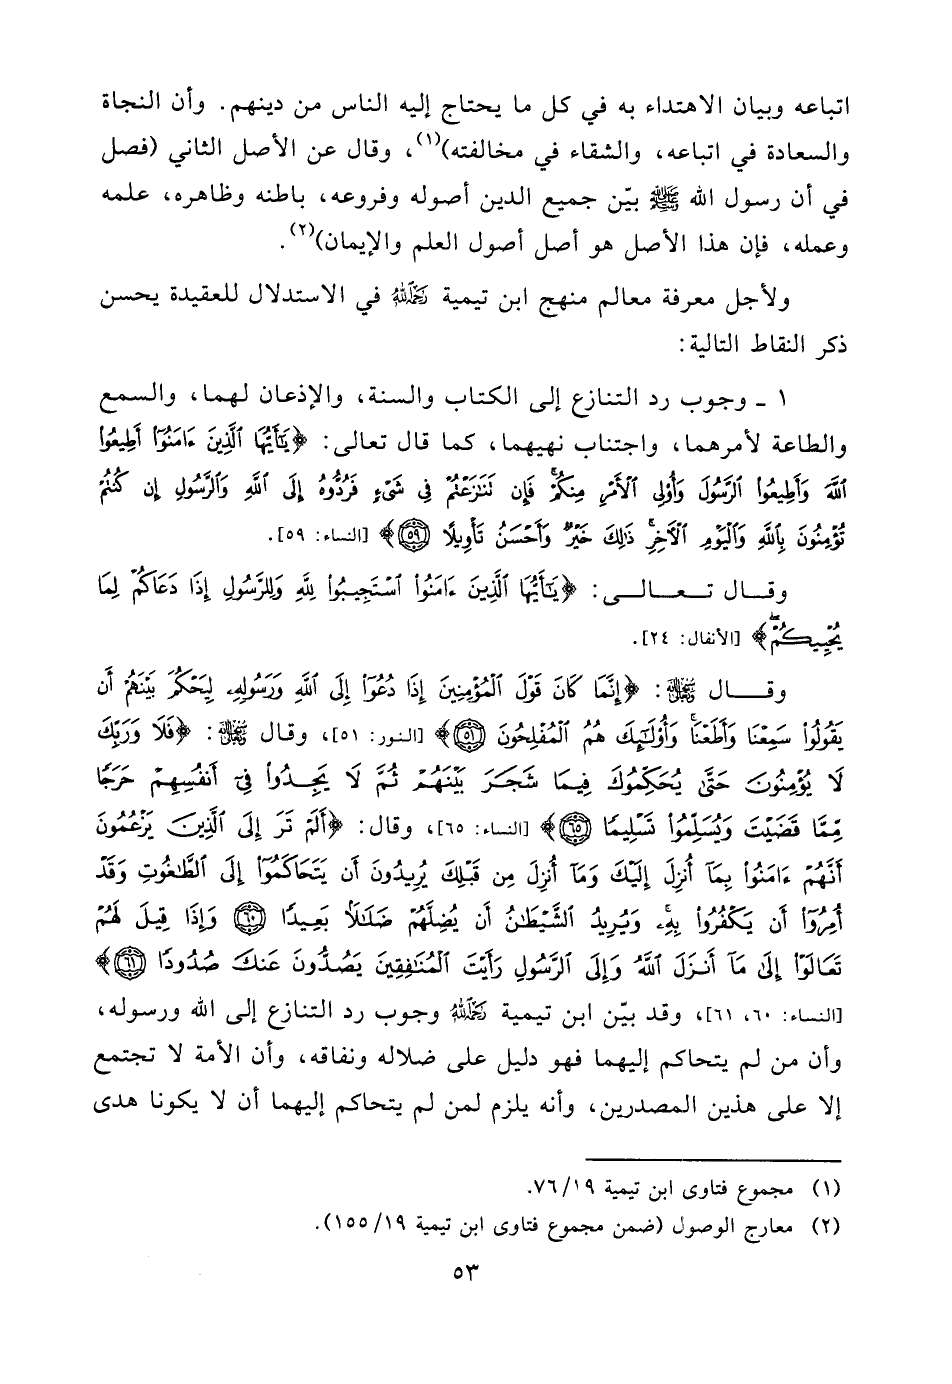 اتباعه وبيان الاهتداء به في كل ما يحتاج إليه الناس من دينهم. وأن النجاة
والسعادة في اتباعه، والشقاء في مخالفته)(١)، وقال عن الأصل الثاني (فصل
في أن رسول الله ﷺ بيّن جميع الدين أصوله وفروعه، باطنه وظاهره، علمه
وعمله، فإن هذا الأصل هو أصل أصول العلم والإيمان)(٢).
ولأجل معرفة معالم منهج ابن تيمية رَحِمَهُ اللهُ في الاستدلال للعقيدة يحسن
ذكر النقاط التالية:
١ ـ وجوب رد التنازع إلى الكتاب والسنة، والإذعان لهما، والسمع
والطاعة لأمرهما، واجتناب نهيهما، كما قال تعالى: ﴿يَٰٓأَيُّهَا ٱلَّذِينَ ءَامَنُوٓا۟ أَطِيعُوا۟
ٱللَّهَ وَأَطِيعُوا۟ ٱلرَّسُولَ وَأُو۟لِى ٱلْأَمْرِ مِنكُمْ ۖ فَإِن تَنَٰزَعْتُمْ فِى شَىْءٍ فَرُدُّوهُ إِلَى ٱللَّهِ وَٱلرَّسُولِ إِن كُنتُمْ
تُؤْمِنُونَ بِٱللَّهِ وَٱلْيَوْمِ ٱلْءَاخِرِ ۚ ذَٰلِكَ خَيْرٌ وَأَحْسَنُ تَأْوِيلًا ٥٩﴾ [النساء: ٥٩].
وقـــال تـعـــالـــى: ﴿يَٰٓأَيُّهَا ٱلَّذِينَ ءَامَنُوا۟ ٱسْتَجِيبُوا۟ لِلَّهِ وَلِلرَّسُولِ إِذَا دَعَاكُمْ لِمَا
يُحْيِيكُمْ ۖ﴾ [الأنفال: ٢٤].
وقـــال تَعَالَى: ﴿إِنَّمَا كَانَ قَوْلَ ٱلْمُؤْمِنِينَ إِذَا دُعُوٓا۟ إِلَى ٱللَّهِ وَرَسُولِهِۦ لِيَحْكُمَ بَيْنَهُمْ أَن
يَقُولُوا۟ سَمِعْنَا وَأَطَعْنَا ۚ وَأُو۟لَٰٓئِكَ هُمُ ٱلْمُفْلِحُونَ ٥١﴾ [النور: ٥١]، وقال تَعَالَى: ﴿فَلَا وَرَبِّكَ
لَا يُؤْمِنُونَ حَتَّىٰ يُحَكِّمُوكَ فِيمَا شَجَرَ بَيْنَهُمْ ثُمَّ لَا يَجِدُوا۟ فِىٓ أَنفُسِهِمْ حَرَجًا
مِّمَّا قَضَيْتَ وَيُسَلِّمُوا۟ تَسْلِيمًا ٦٥﴾ [النساء: ٦٥]، وقال: ﴿أَلَمْ تَرَ إِلَى ٱلَّذِينَ يَزْعُمُونَ
أَنَّهُمْ ءَامَنُوا۟ بِمَآ أُنزِلَ إِلَيْكَ وَمَآ أُنزِلَ مِن قَبْلِكَ يُرِيدُونَ أَن يَتَحَاكَمُوٓا۟ إِلَى ٱلطَّٰغُوتِ وَقَدْ
أُمِرُوٓا۟ أَن يَكْفُرُوا۟ بِهِۦ وَيُرِيدُ ٱلشَّيْطَٰنُ أَن يُضِلَّهُمْ ضَلَٰلًۢا بَعِيدًا ٦٠ وَإِذَا قِيلَ لَهُمْ
تَعَالَوْا۟ إِلَىٰ مَآ أَنزَلَ ٱللَّهُ وَإِلَى ٱلرَّسُولِ رَأَيْتَ ٱلْمُنَٰفِقِينَ يَصُدُّونَ عَنكَ صُدُودًا ٦١﴾
[النساء: ٦٠، ٦١]، وقد بيّن ابن تيمية رَحِمَهُ اللهُ وجوب رد التنازع إلى الله ورسوله،
وأن من لم يتحاكم إليهما فهو دليل على ضلاله ونفاقه، وأن الأمة لا تجتمع
إلا على هذين المصدرين، وأنه يلزم لمن لم يتحاكم إليهما أن لا يكونا هدى
(١) مجموع فتاوى ابن تيمية ١٩/ ٧٦.
(٢) معارج الوصول (ضمن مجموع فتاوى ابن تيمية ١٩/ ١٥٥).
٥٣